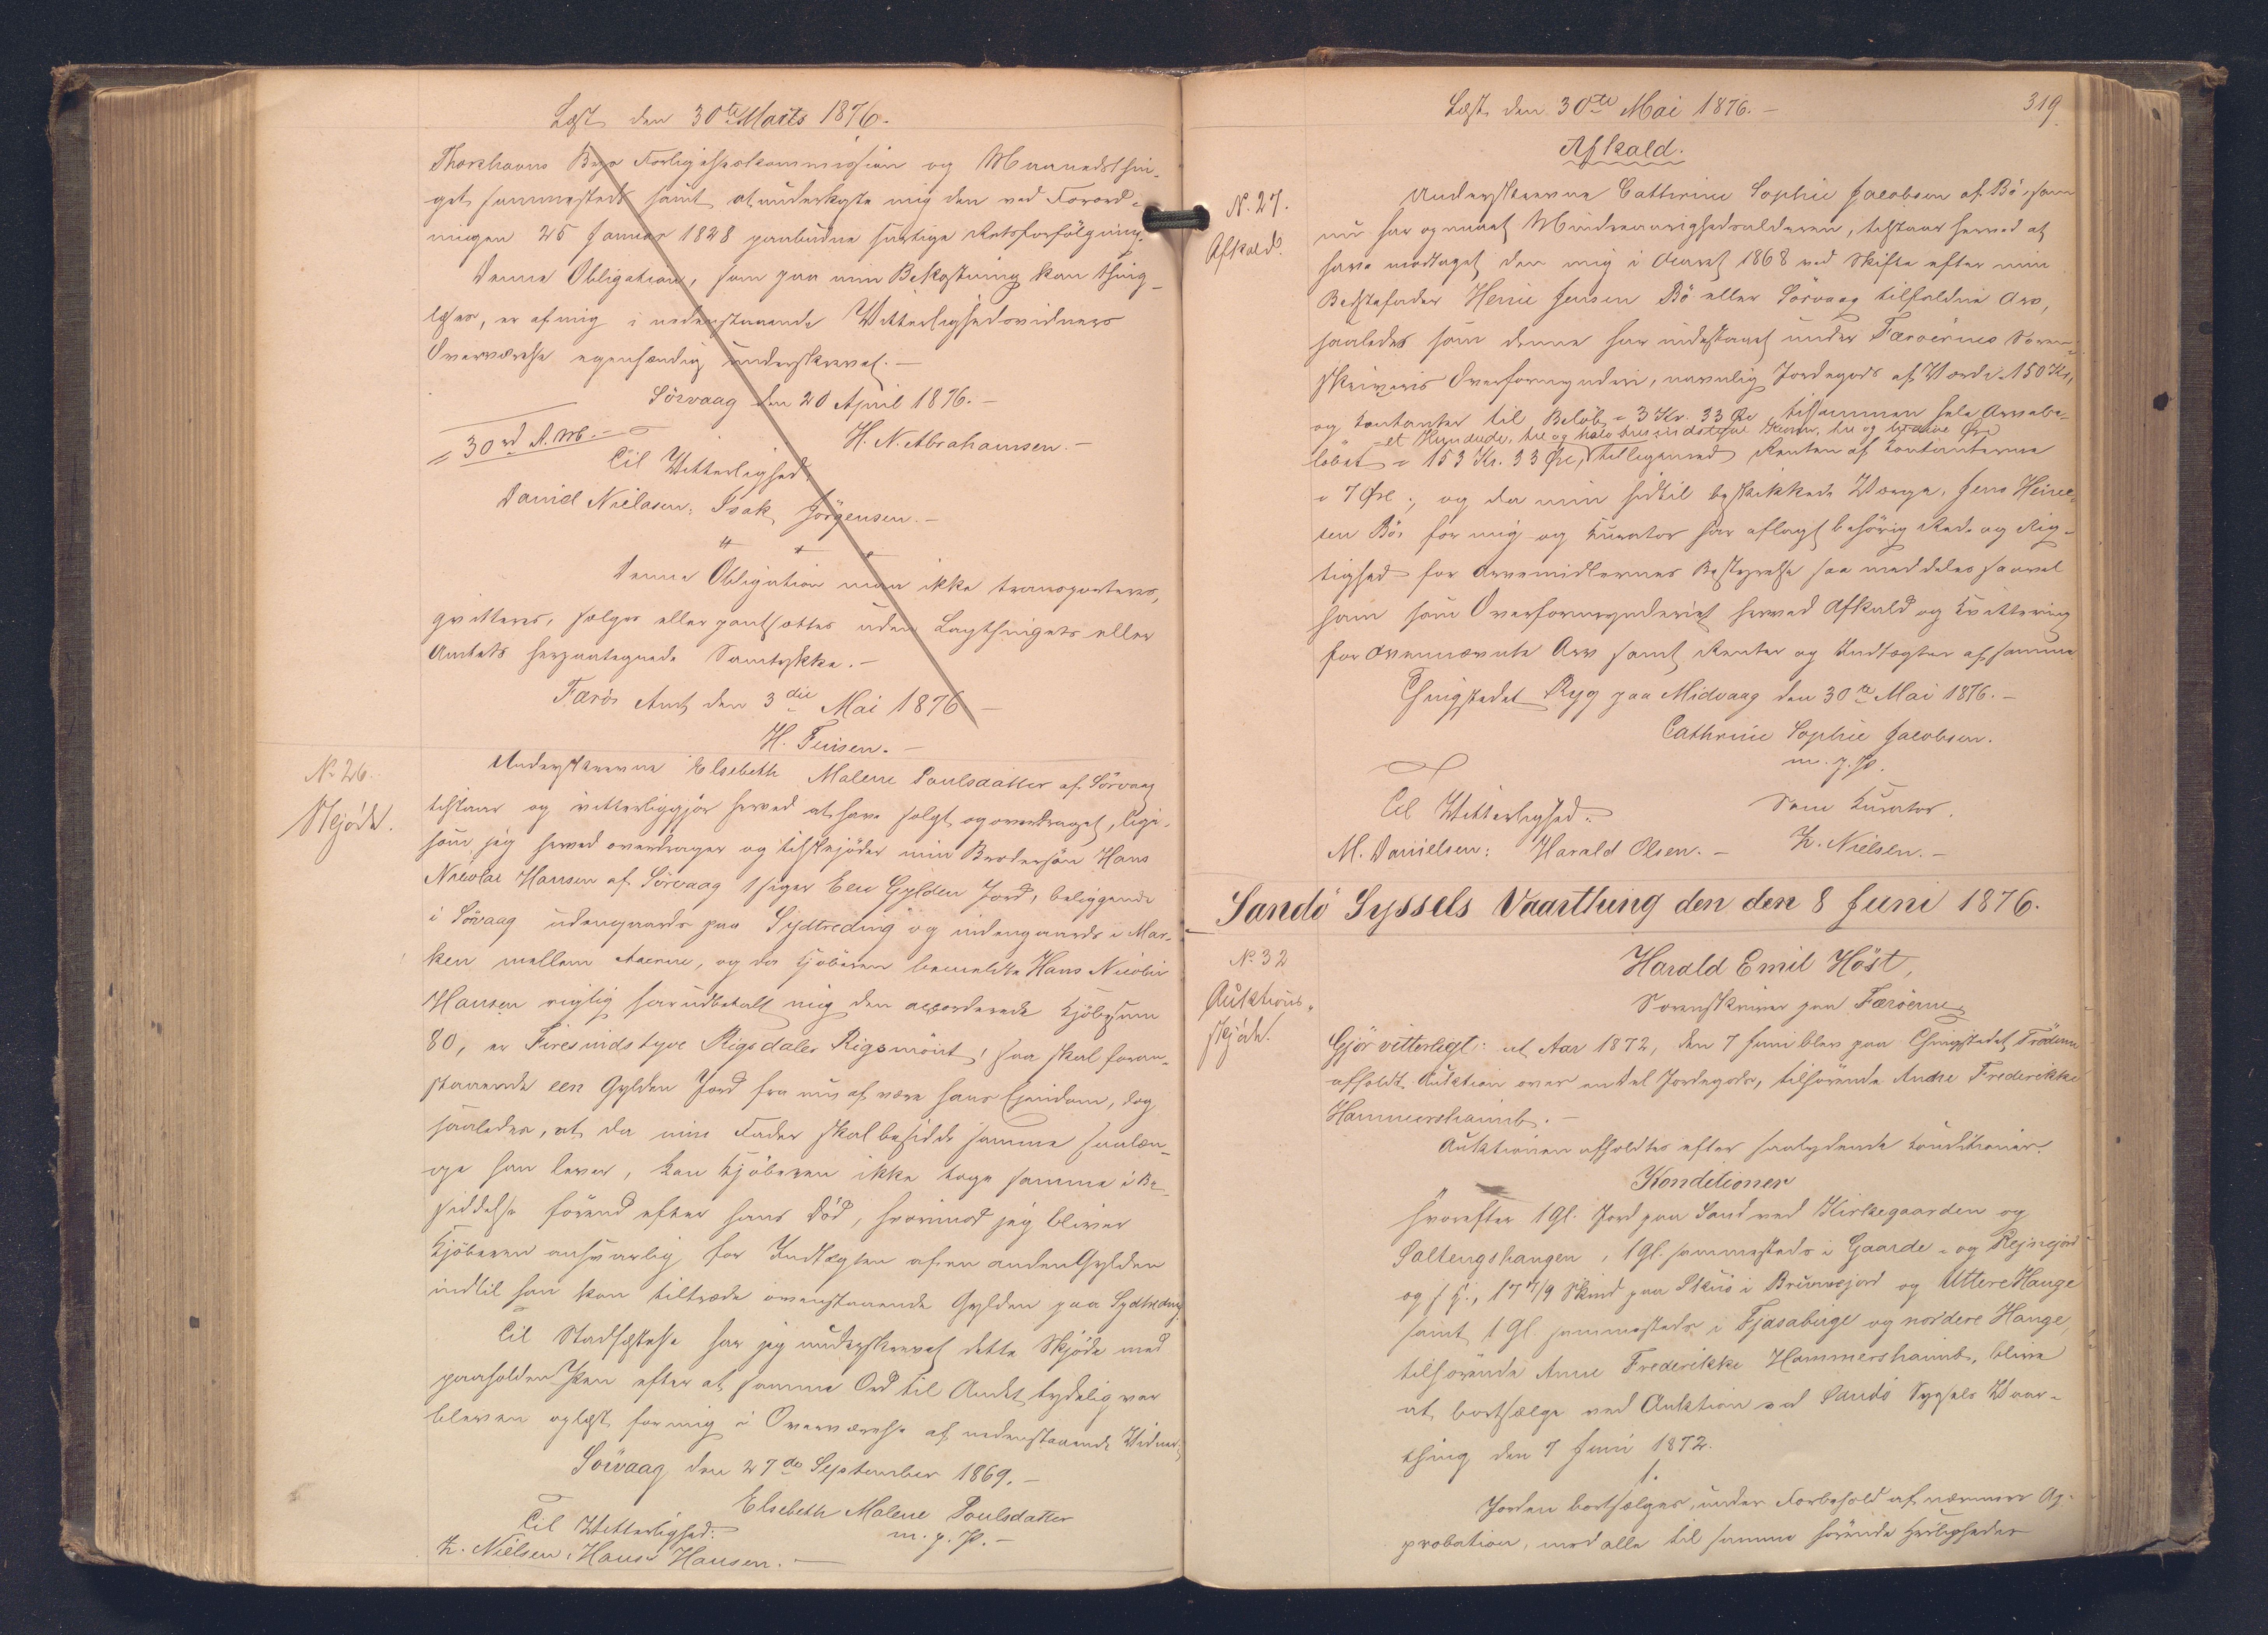 Læst den 30te Marts 1876.
Thorshavns Byes Forligelseskommission og Maanedsthin-
get sammesteds samt at underkaste mig den ved Forord-
ningen 25 Januar 1828 paabudne hurtige Retsforfölgning.
Denne Obligation, som paa min Bekostning kan thing-
læses, er af mig i nedenstaaende Vitterlighedsvidners
Overværelse egenhændig underskrevet. –
Sörvaag den 20 April 1876. –
= 30 rd R.M. –
H. N. Abrahamsen. –
Til Vitterlighed:
Daniel Nielasen: Isak Jörgensen. –
Denne Obligation maa ikke transporteres,
qvitteres, sælges eller pantsættes uden Lagthingets eller
Amtets herpaategnede Samtykke. –
Færös Amt den 3die Mai 1876 –
H. Finsen. –
No 26.
Skjöde.
Underskrevne Elsebeth Malene Poulsdatter af Sörvaag
tilstaar og vitterliggjör herved at have solgt og overdraget, lige-
som jeg herved overdrager og tilskjöder min Brodersön Hans
Nicolai Hansen af Sörvaag 1 siger Een Gylden Jord, beliggende
i Sörvaag udengaards paa Sydtreding og indengaards i Mar-
ken mellem Aaerne, og da Kjöberen bemeldte Hans Nicolai
Hansen rigtig har udbetalt mig den accorderede Kjöbesum
80, er Firesindstyve Rigsdaler Rigsmönt, saa skal foran-
staaende een Gylden Jord fra nu af være hans Ejendom, dog
saaledes, at da min Fader skal besidde samme saalæn-
ge han lever, kan Kjöberen ikke tage samme i Be-
siddelse förend efter hans Död, hvorimod jeg bliver
Kjöberen ansvarlig for Indtægten af en anden Gylden
indtil han kan tiltræde ovenstaaende Gylden paa Sydtreding.
Til Stadfæstelse har jeg underskrevet dette Skjöde med
paaholden Pen efter at samme Ord til Andet tydelig var
bleven oplæst for mig i Overværelse af nedenstaaende Vidner.
Sörvaag den 27de September 1869. –
Elsebeth Malene Poulsdatter
m. p. P. –
Til Vitterlighed:
Z. Nielsen: Hans Hansen. –
Læst den 30te Mai 1876. –
319
Afkald.
No. 27.
Afkald.
Underskrevne Cathrine Sophie Jacobsen af Bö, som
nu har opnaaet Mindreaarighedsalderen, tilstaar herved at
have modtaget den mig i Aaret 1868 ved Skifte efter min
Bedstefader Heine Jensen Bö eller Sörvaag tilfaldne Arv,
saaledes som denne har indestaaet under Færöernes Soren-
skriveris Overformynderi, navnlig Jordegods af Værdi 150 Kr,
og Contanter til Belöb = 3 Kr. 33 Øre, tilsammen hele Arvebe-
et Hundrede, tre og halvtresindstyve Kroner, tre og tredive Øre
löbet = 153 Kr. 33 Øre, tilligemed Renten af Contanterne
= 7 Øre; og da min hidtil beskikkede Værge, Jens Heine-
sen Bö, for mig og Kurator har aflagt behörig Rede og Rig-
tighed for Arvemidlernes Bestyrelse saa meddeles saavel
ham som Overformynderiet herved Afkald og Kvittering
for ovennævnte Arv samt Renter og Indtægter af samme
Thingstedet Ryg paa Midvaag den 30te Mai 1876. –
Cathrine Sophie Jacobsen.
m. p. P.
Til Vitterlighed:
Som Kurator.
M. Danielsen: Harald Olsen. –
Z. Nielsen. –
Sandö Syssels Vaarthing den den 8 Juni 1876.
No. 32
Auktions-
skjöde.
Harald Emil Höst,
Sorenskriver paa Færöerne
Gjör vitterligt: at Aar 1872, den 7 Juni blev paa Thingstedet Tröden
afholdt Auktion over endel Jordegods, tilhörende Anne Frederikke
Hammershaimb. –
Auktionen afholdtes efter saalydende Konditioner:
Konditioner
hvorefter 1 Gl. Jord paa Sand ved Kirkegaarden og
Saltengshangen, 1 Gl. sammesteds i Gaarde- og Rejnejord
og s. H., 17 7/9 Skind paa Skuö i Brunnejord og Uttere Hauge
samt 1 Gl. sammesteds i Fjasabirge og nordere Hauge,
tilhörende Anne Frederikke Hammershaimb, blive
at bortsælge ved Auktion ved Sandö Syssels Vaar-
thing den 7 Juni 1872.
1.
Jorden bortsælges, under Forbehold af nærmere Ap-
probation, med alle til samme hörende Herligheder